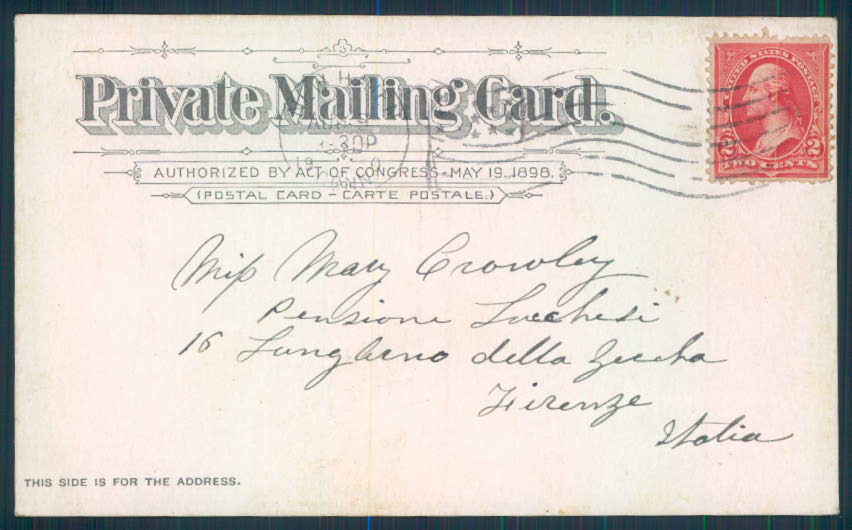 Private Mailing Card.
AUTHORIZED BY ACT OF CONGRESS - MAY 19, 1898.
(POSTAL CARD - CARTE POSTALE.)
UNITED STATES POSTAGE
2 2
TWO CENTS
30P
Miss Mary Crowley
Pensione Lucchesi
16 Lunglarno della Zecca
Firenze
Italia
THIS SIDE IS FOR THE ADDRESS.